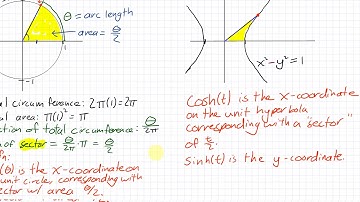 θ = arc length
area = θ/2
1
-1
x²-y²=1
1
al circumference: 2π(1)=2π
al area: π(1)² = π
ction of total circumference: θ/2π
of sector = θ/2π · π = θ/2
n:
(θ) is the x-coordinate on
unit circle, corresponding with
ector w/ area θ/2.
Cosh(t) is the x-coordinate
on the unit hyperbola
corresponding with a "sector"
of t/2.
sinh(t) is the y-coordinate.